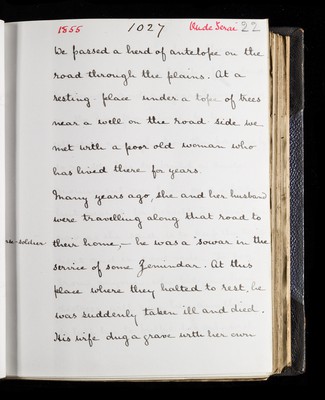 1855 1027 Kude Serai 22
We passed a herd of antelope on the
road through the plains. At a
resting-place under a tope of trees
near a well on the road side we
met with a poor old woman who
has lived there for years.
Many years ago, she and her husband
were travelling along that road to
se-soldier their home,- he was a 'sowar in the
service of some Zemindar. At this
place where they halted to rest, he
was suddenly taken ill and died.
His wife dug a grave with her own